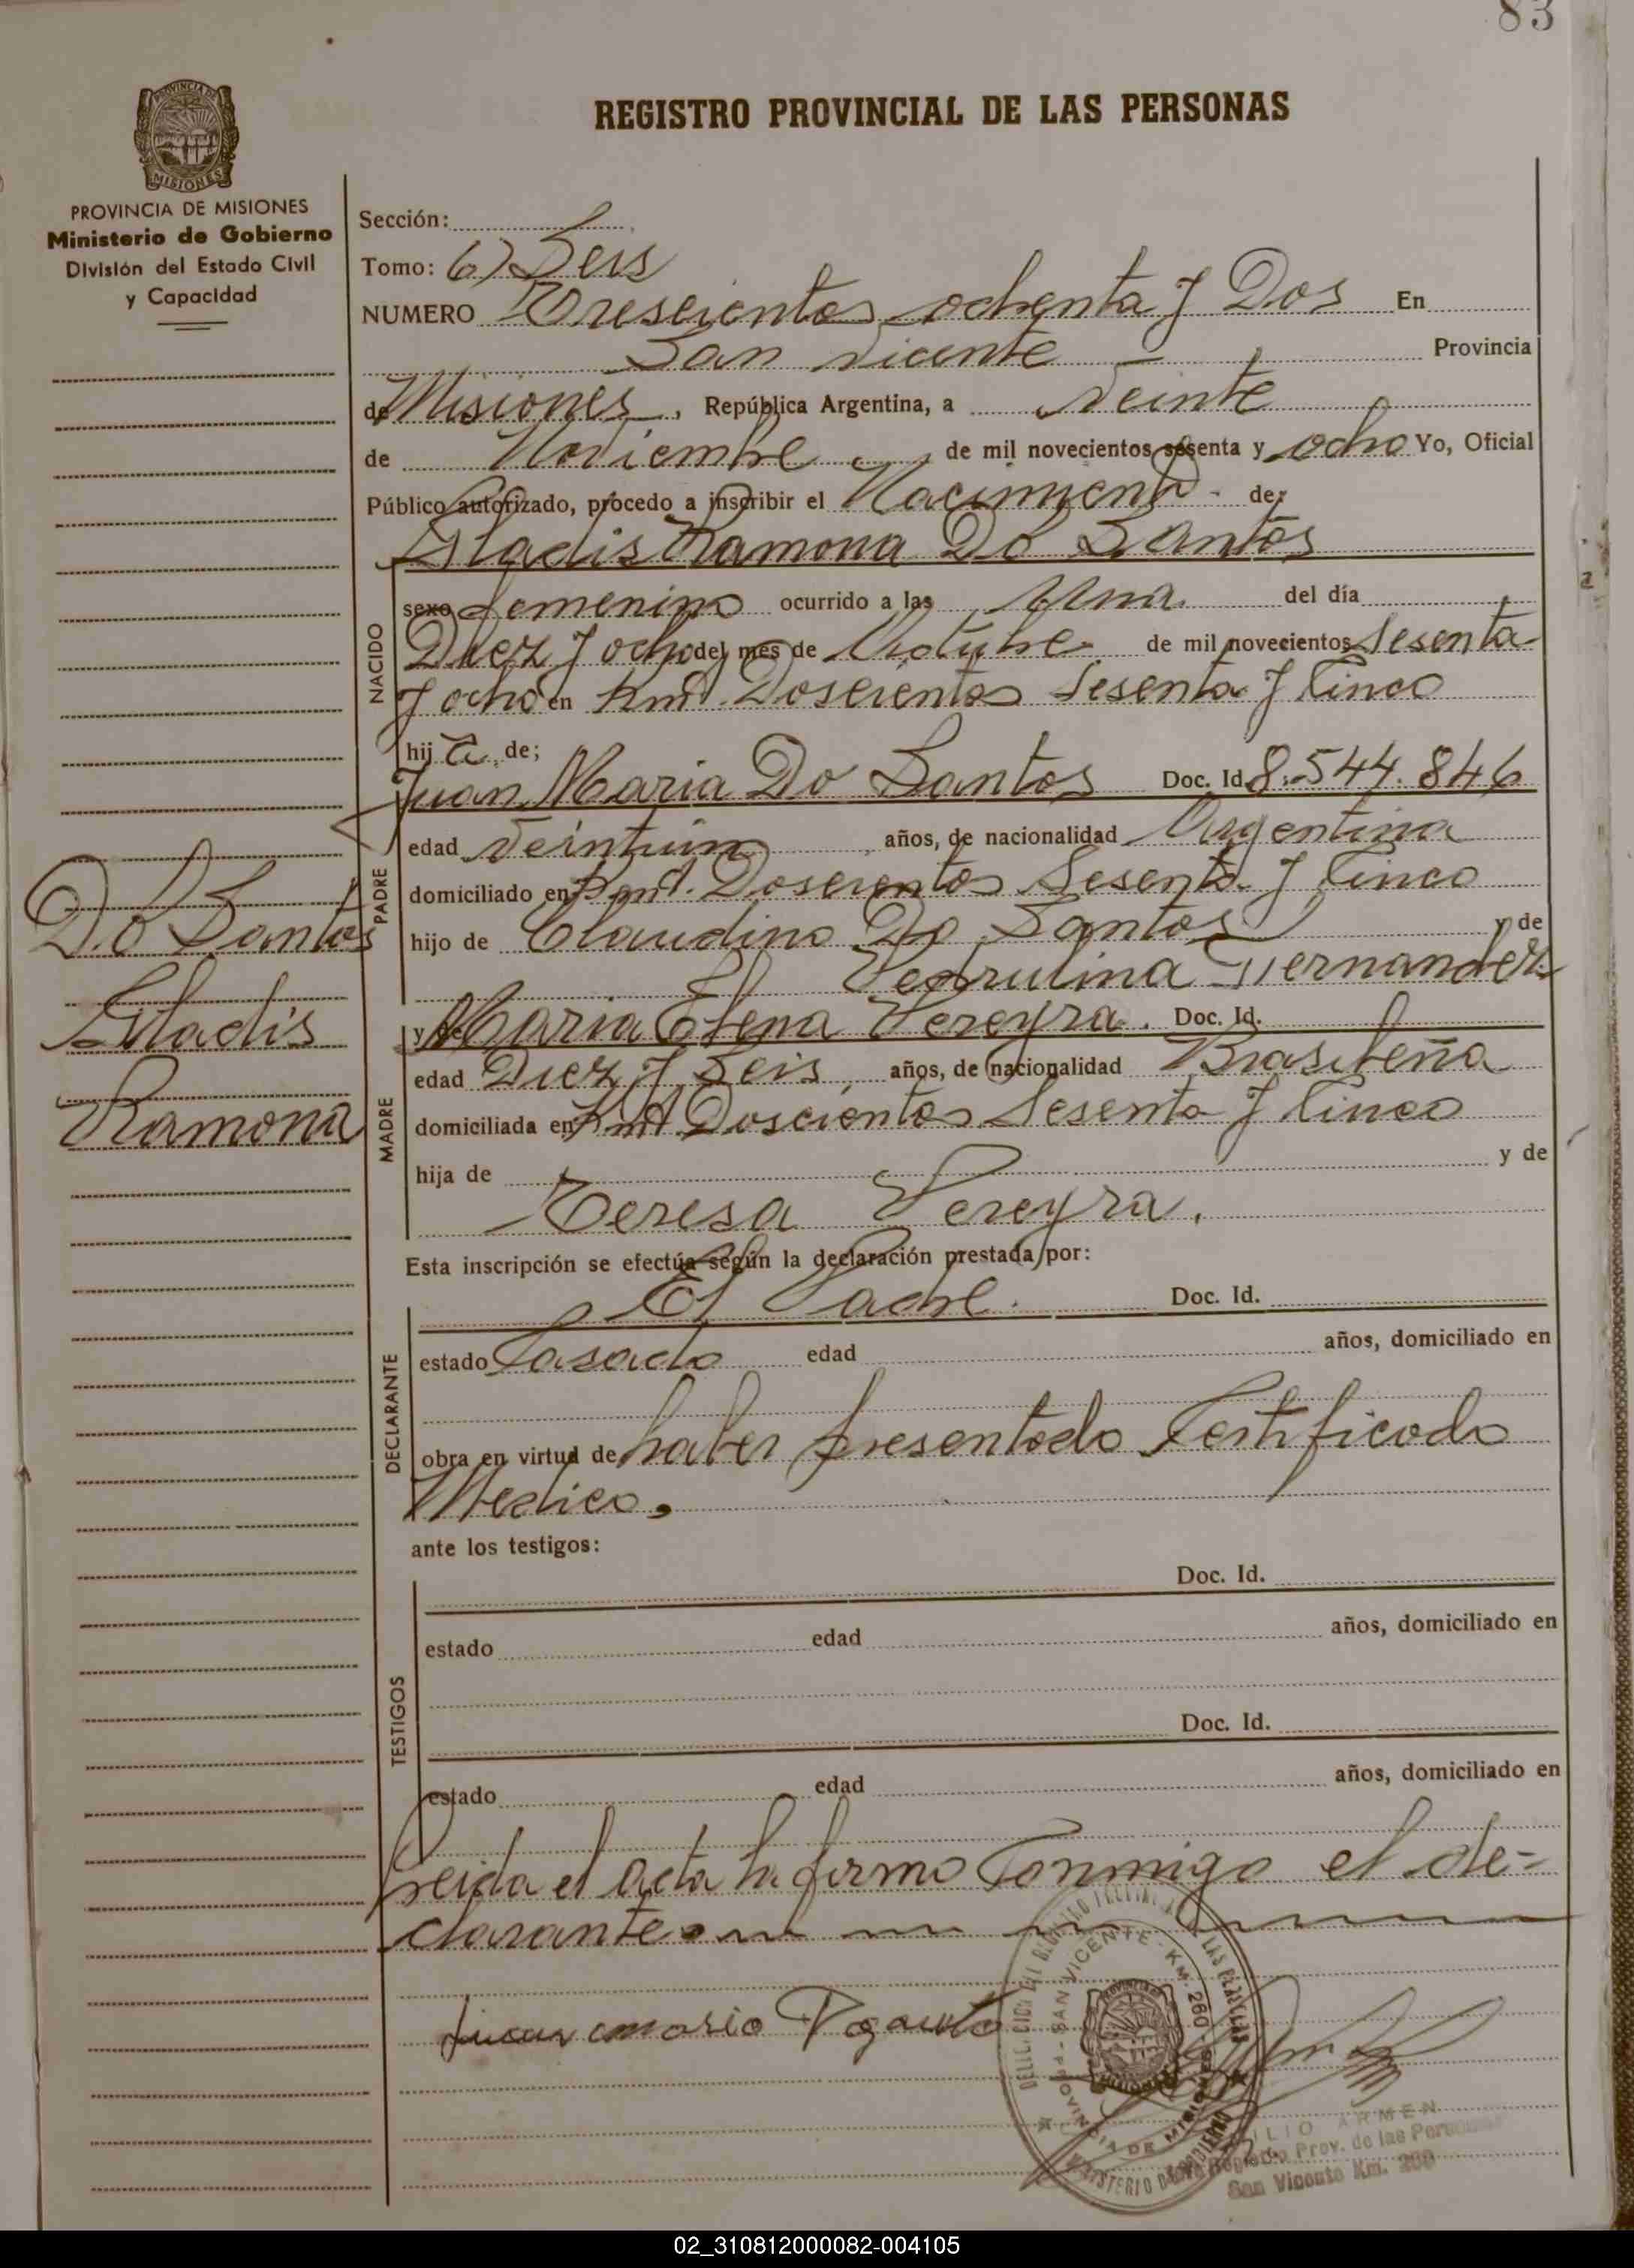 83
REGISTRO PROVINCIAL DE LAS PERSONAS
PROVINCIA DE
MISIONES
PROVINCIA DE MISIONES
Ministerio de Gobierno
División del Estado Civil
y Capacidad
Sección:
Tomo: 6) Seis
NUMERO Trescientos ochenta y Dos En
San Vicente Provincia
de Misiones, República Argentina, a Veinte
de Noviembre de mil novecientos sesenta y ocho Yo, Oficial
Público autorizado, procedo a inscribir el Nacimiento de:
Gladis Ramona Do Santos
NACIDO
sexo femenino ocurrido a las Una del día
Diez y ocho del mes de Octubre de mil novecientos Sesenta
y ocho en Kmt. Doscientos Sesenta y Cinco
hij a de;
Juan Maria Do Santos Doc. Id. 8.544.846
PADRE
edad Veintiún años, de nacionalidad Argentina
domiciliado en Kmt. Doscientos Sesenta y Cinco
hijo de Claudino Do Santos y de
Pedrulina Fernandez
Do Santos
Gladis
Ramona
y de Maria Elena Pereyra. Doc. Id.
MADRE
edad Diez y Seis, años, de nacionalidad Brasileña
domiciliada en Kmt Doscientos Sesenta y Cinco
hija de y de
Teresa Pereyra.
Esta inscripción se efectúa según la declaración prestada por:
El Padre. Doc. Id.
DECLARANTE
estado Casado edad años, domiciliado en
obra en virtud de haber presentado Certificado
Medico.
ante los testigos:
Doc. Id.
TESTIGOS
estado edad años, domiciliado en
Doc. Id.
estado edad años, domiciliado en
Leida el acta la firma Conmigo el de-
clarante.
SAN VICENTE - KM. 260
PROVINCIA DE MISIONES
MINISTERIO DE GOBIERNO
LAS PERSONAS
ILIO ARMEN
Registro Prov. de las Personas
San Vicente Km. 260
02_310812000082-004105